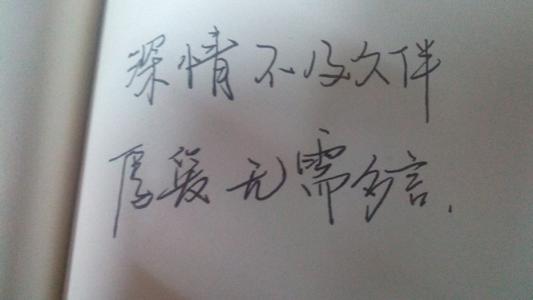 深情不及久伴
厚爱无需多言.